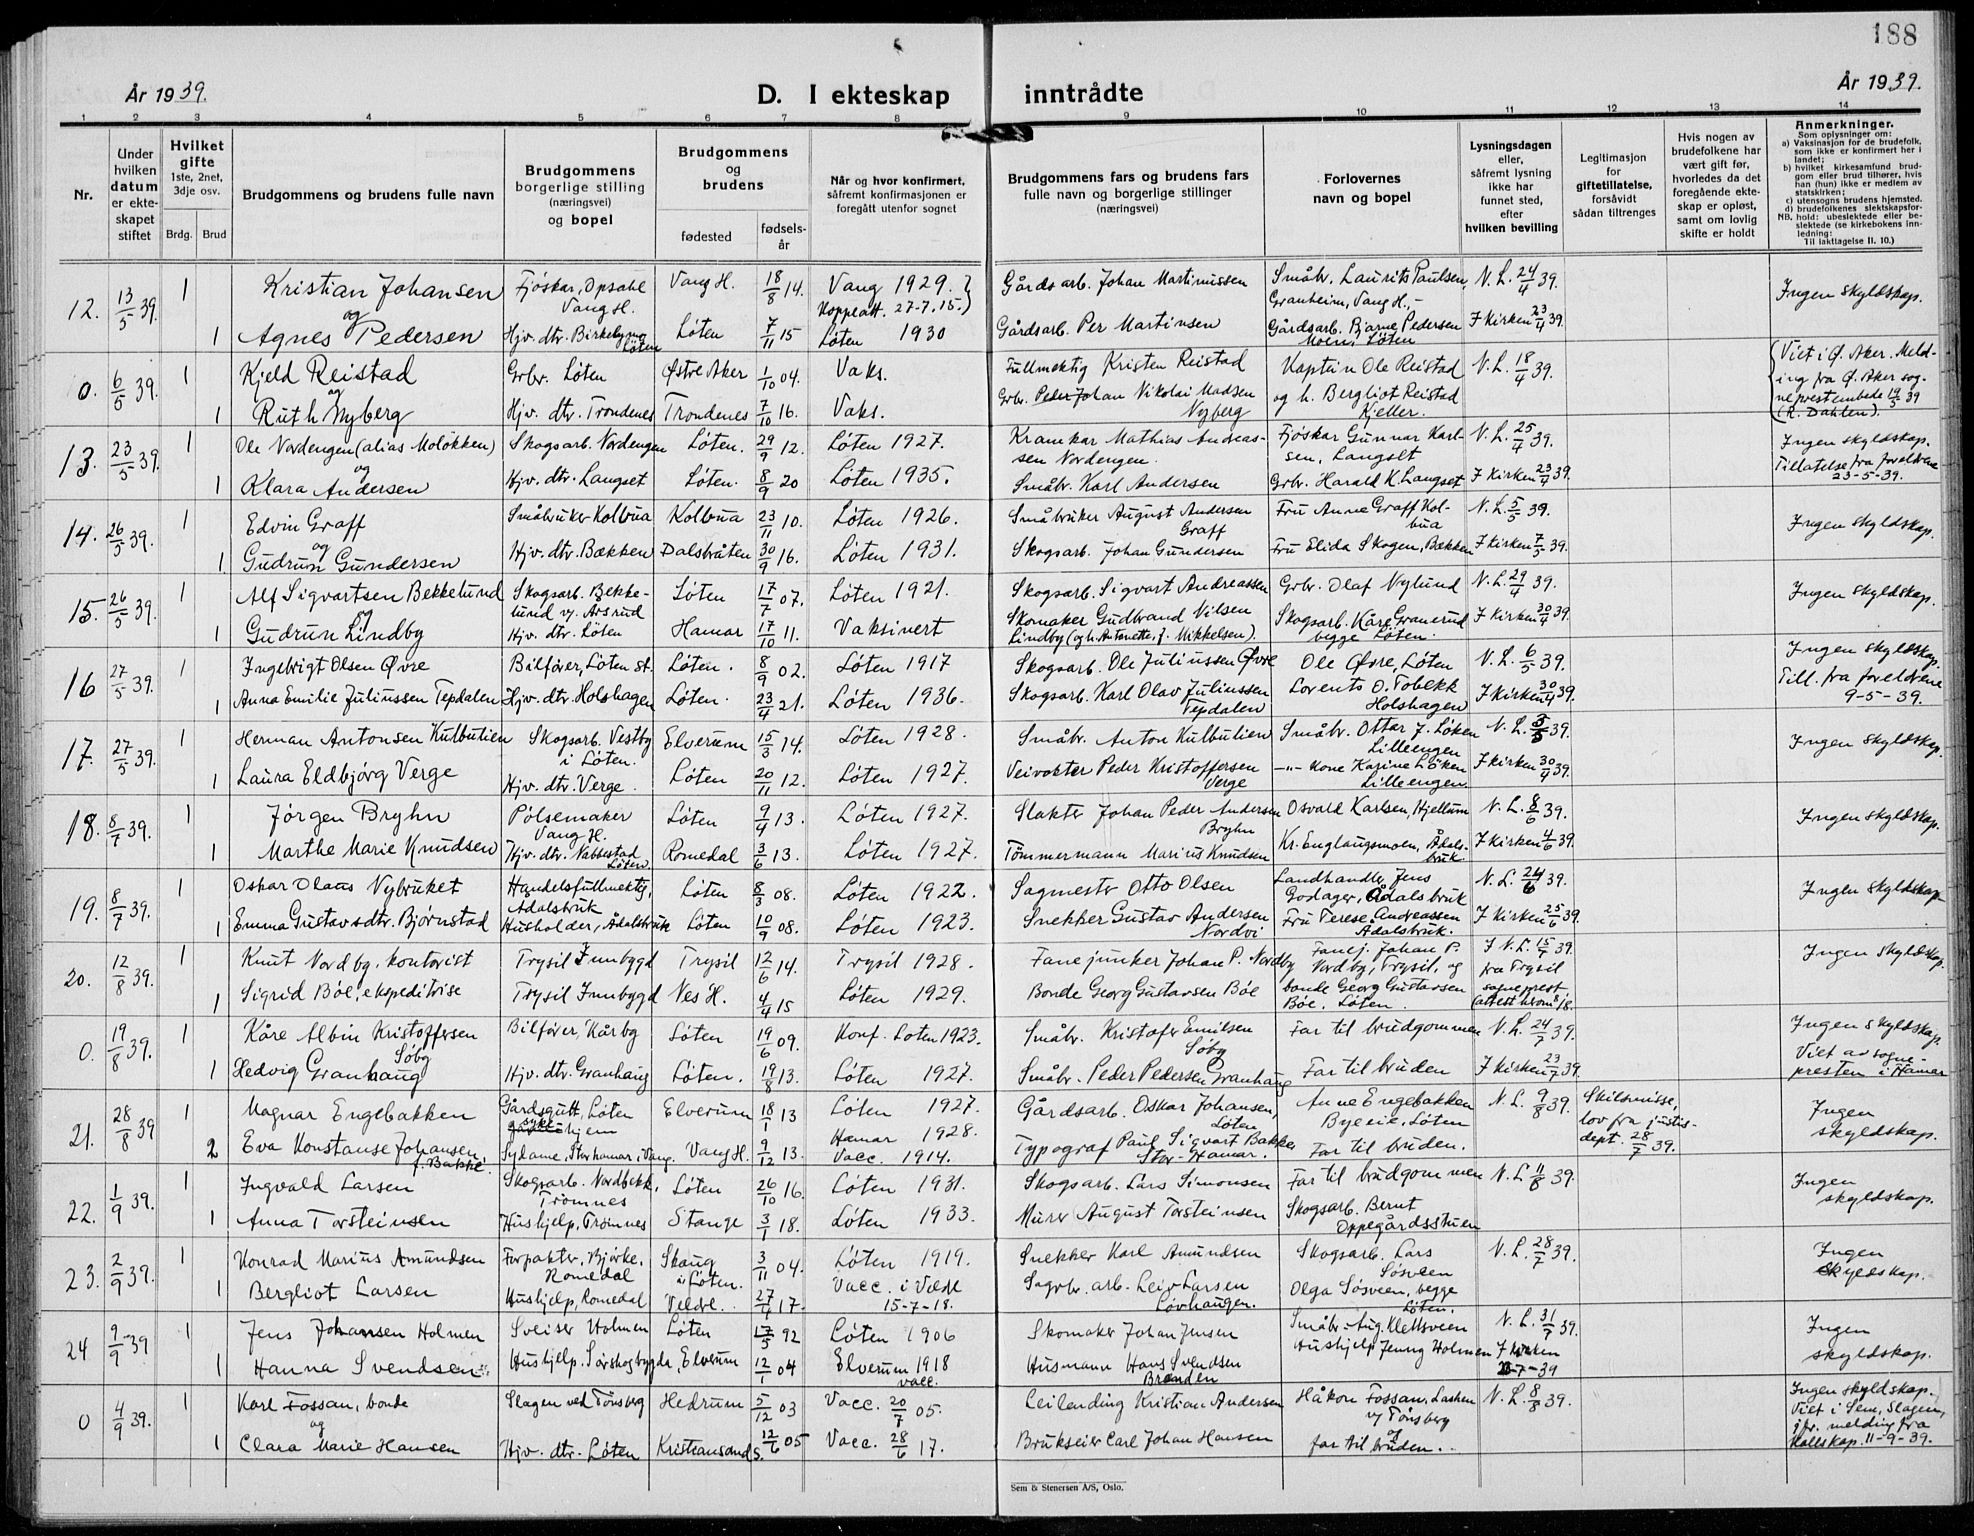 188
År 1939.
D. I ekteskap inntrådte
År 1939.
1 2 3 4 5 6 7 8 9 10 11 12 13 14
Nr.
Under hvilken datum er ekteskapet stiftet
Hvilket gifte 1ste, 2net, 3dje osv.
Brdg. Brud
Brudgommens og brudens fulle navn
Brudgommens borgerlige stilling (næringsvei) og bopel
Brudgommens og brudens
fødested
fødselsår
Når og hvor konfirmert, såfremt konfirmasjonen er foregått utenfor sognet
Brudgommens fars og brudens fars fulle navn og borgerlige stillinger (næringsvei)
Forlovernes navn og bopel
Lysningsdagen eller, såfremt lysning ikke har funnet sted, efter hvilken bevilling
Legitimasjon for giftetillatelse, forsåvidt sådan tiltrenges
Hvis nogen av brudefolkene har vært gift før, hvorledes da det foregående ekteskap er opløst, samt om lovlig skifte er holdt
Anmerkninger.
Som oplysninger om:
a) Vaksinasjon for de brudefolk, som ikke er konfirmert her i landet;
b) hvilket kirkesamfund brudgom eller brud tilhører, hvis han (hun) ikke er medlem av statskirken;
c) utensogns brudens hjemsted.
d) brudefolkenes slektskapsforhold: ubeslektede eller beslektede (se kirkebokens innledning:
NB. Til iakttagelse II. 10.)
12. 13/5 39. 1 Kristian Johansen Fjøskar, Opsahl Vang H. Vang H. 18/8 14. Vang 1929. Koppeatt. 27-7.15. Gårdsarb. Johan Martinussen Småbr. Laurits Paulsen, Granheim, Vang H. N. L. 24/4 39. Ingen skyldskap.
og
1 Agnes Pedersen Hjv. dtr. Løten Løten 7/11 15 Løten 1930 Gårdsarb. Per Martinsen Gårdsarb. Bjarne Pedersen Moen, Løten I Kirken 23/4 39.
0. 6/5 39. 1 Kjeld Reistad Grbr. Løten Østre Aker 1/10 04. Vaks. Fullmektig Kristen Reistad Kaptein Ole Reistad N. L. 18/4 39. Viet i Ø. Aker. Melding fra Ø. Aker sogneprestembede 19/5 39 (R. Dahlen).
og
1 Ruth Nyberg Hjv. dtr. Trondenes Trondenes 7/10 16. Vaks. Grbr. Peder Johan Nikolai Madsen Nyberg og h. Bergliot Reistad Kjeller.
13. 23/5 39. 1 Ole Nordengen (alias Moløkken) Skogsarb. Nordengen Løten. 29/9 12. Løten 1927. Kramkar Mathias Andreassen Nordengen. Fjøskar Gunnar Karlsen, Langset N. L. 25/4 39. Ingen skyldskap.
og
1 Klara Andersen Hjv. dtr. Langset Løten. 8/9 20 Løten 1935. Småbr. Karl Andersen Grbr. Harald K. Langset I Kirken 23/4 39. Tillatelse fra foreldrene 23-5-39.
14. 26/5 39. 1 Edvin Graff Småbruker Kolbua Kolbua 23/11 10. Løten 1926. Småbruker August Andersen Graff Fru Anne Graff Kolbua N. L. 5/5 39. Ingen skyldskap.
og
1. Gudrun Gundersen Hjv. dtr. Bækken Dalsbråten 30/9 16. Løten 1931. Skogsarb. Johan Gundersen Fru Elida Skogen, Bækken I Kirken 7/5 39.
15. 26/5 39. 1 Alf Sigvartsen Bekkelund Skogsarb. Bekkelund v/ Årsrud Løten 17/7 07. Løten 1921. Skogsarb. Sigvart Andreassen Grbr. Olaf Nylund N. L. 29/4 39. Ingen skyldskap.
og
1 Gudrun Lindby Hjv. dtr. Løten Hamar 17/10 11. Vaksinert Skomaker Gudbrand Nilsen Lindby (og h. Antonette, f. Mikkelsen). Skogsarb. Kåre Granerud begge Løten. I Kirken 30/4 39.
16 27/5 39. 1 Ingebrigt Olsen Øvre Bilfører, Løten st. Løten. 8/9 02. Løten 1917 Skogsarb. Ole Juliussen Øvre Ole Øvre, Løten N. L. 6/5 39. Ingen skyldskap.
1 Anna Emilie Juliussen Tepdalen Hjv. dtr. Holshagen Løten. 23/4 21. Løten 1936. Skogsarb. Karl Olav Juliussen Tepdalen Lorents O. Tobekk Holshagen I Kirken 30/4 39. Till. fra foreldrene 9-5-39.
17. 27/5 39. 1 Herman Antonsen Kulbulien Skogsarb. Vestby i Løten. Elverum 15/3 14. Løten 1928. Småbr. Anton Kulbulien Småbr. Ottar J. Løken Lilleengen N. L. 39. Ingen skyldskap.
1 Laura Eldbjørg Verge Hjv. dtr. Verge. Løten 20/11 12. Løten 1927. Veivokter Peder Kristoffersen Verge —"— Kone Karine Løken Lilleengen I kirken 30/4 39.
18. 8/7 39. 1 Jørgen Bryhn Pølsemaker Vang H. Løten 9/4 13. Løten 1927. Slakter Johan Peder Andersen Bryhn Osvald Karlsen, Hjellum N. L. 8/6 39. Ingen skyldskap.
1 Marthe Marie Knudsen Hjv. dtr. Nabbestad Løten Romedal 3/6 13. Løten 1927. Tømmermann Marius Knudsen Kr. Englaugsmoen, Ådalsbruk. I Kirken 4/6 39.
19. 8/7 39. 1 Oskar Olaus Nybruket Handelsfullmektig, Ådalsbruk Løten 8/3 08. Løten 1922. Sagmester Otto Olsen Landhandler Jens Godager, Ådalsbruk N. L. 24/6 39. Ingen skyldskap
1 Emma Gustavsdtr. Bjørnstad Husholder, Ådalsbruk Løten 10/9 08. Løten 1923. Snekker Gustav Andersen Nordvi Fru Terese Andreassen Ådalsbruk. I Kirken 25/6 39.
20. 12/8 39. 1 Knut Nordby, kontorist Trysil Innbygd Trysil 12/6 14. Trysil 1928. Fanejunker Johan P. Nordby Fanej. Johan P. Nordby, Trysil, og I N. L. 15/7 39. fra Trysil sogneprest Ingen skyldskap.
1 Sigrid Bøe, ekspeditrise Trysil Innbygd Nes H. 4/4 15 Løten 1929. Bonde Georg Gustavsen Bøe bonde Georg Gustavsen Bøe, Løten.
0. 19/8 39. 1 Kåre Albin Kristoffersen Søby Bilfører, Kårby Løten 19/6 09. Konf. Løten 1923. Småbr. Kristofer Emilsen Søby Far til brudgommen N. L. 24/7 39. Ingen skyldskap.
1 Hedvig Granhaug Hjv. dtr. Granhaug Løten. 19/8 13. Løten 1927. Småbr. Peder Pedersen Granhaug Far til bruden I Kirken 23/7 39. Viet av sognepresten i Hamar
21. 28/8 39 1 Magnar Engebakken Gårdsgutt, Løten sykehjem Elverum 18/1 13 Løten 1927. Gårdsarb. Oskar Johansen, Løten Anne Engebakken Byeeie, Løten N. L. 9/8 39. Skilsmisse, lov fra justisdept. 28/7 39. Ingen skyldskap.
2 Eva Konstanse Johansen f. Bakke. Sydame, Storhamar i Vang. Vang H. 9/12 13. Hamar 1928. Vacc. 1914. Typograf Paul Sigvart Bakke Stor-Hamar. Far til bruden.
22. 1/9 39. 1 Ingvald Larsen Skogsarb. Nordbekk, Trømnes Løten 26/10 16. Løten 1931. Skogsarb. Lars Simonsen Far til brudgommen N. L. 11/8 39. Ingen skyldskap.
1 Anna Torsteinsen Hushjelp, Trømnes Stange 3/1 18. Løten 1933. Murer August Torsteinsen Skogsarb. Bernt Oppegårdsstuen
23. 2/9 39. 1 Konrad Marius Amundsen Forpakter, Bjørke, Romedal Skaug i Løten. 3/11 04. Løten 1919. Snekker Karl Amundsen Skogsarb. Lars Søsveen N. L. 28/7 39. Ingen skyldskap.
1 Bergliot Larsen Hushjelp, Romedal Veldre. 27/1 17. Vacc. i Veldre 15-7-18. Sagbr. arb. Leiv Larsen Løvhaugen. Olga Søsveen, begge Løten.
24 9/9 39 1 Jens Johansen Holmen Sveiser Holmen Løten 17/5 92 Løten 1906 Skomaker Johan Jensen Småbr. Aug. Klettsveen N. L. 31/7 39. Ingen skyldskap.
1 Hanna Svendsen Hushjelp. Sørskogbygda Elverum 12/1 04 Elverum 1918 vacc. Husmann Hans Svendsen Brenden Hushjelp Jenny Holmen I kirken -7-39
0 4/9 39. 1 Karl Fossan, bonde Slagen ved Tønsberg Hedrum 5/12 03 Vacc. 20/7 05. Leilending Kristian Andersen Håkon Fossan, Lasken v/ Tønsberg N. L. 8/8 39. Ingen skyldskap. Viet i Sem, Slagen, jfr. melding fra 11-9-39.
og
1 Clara Marie Hansen Hjv. dtr. Løten Kristiansand S. 12/6 05 Vacc. 28/6 17. Brukseier Carl Johan Hansen og far til bruden.
Sem & Stenersen A/S, Oslo.